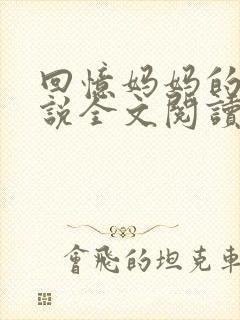 回憶妈妈的
説全文閱讀
會飛的坦克車